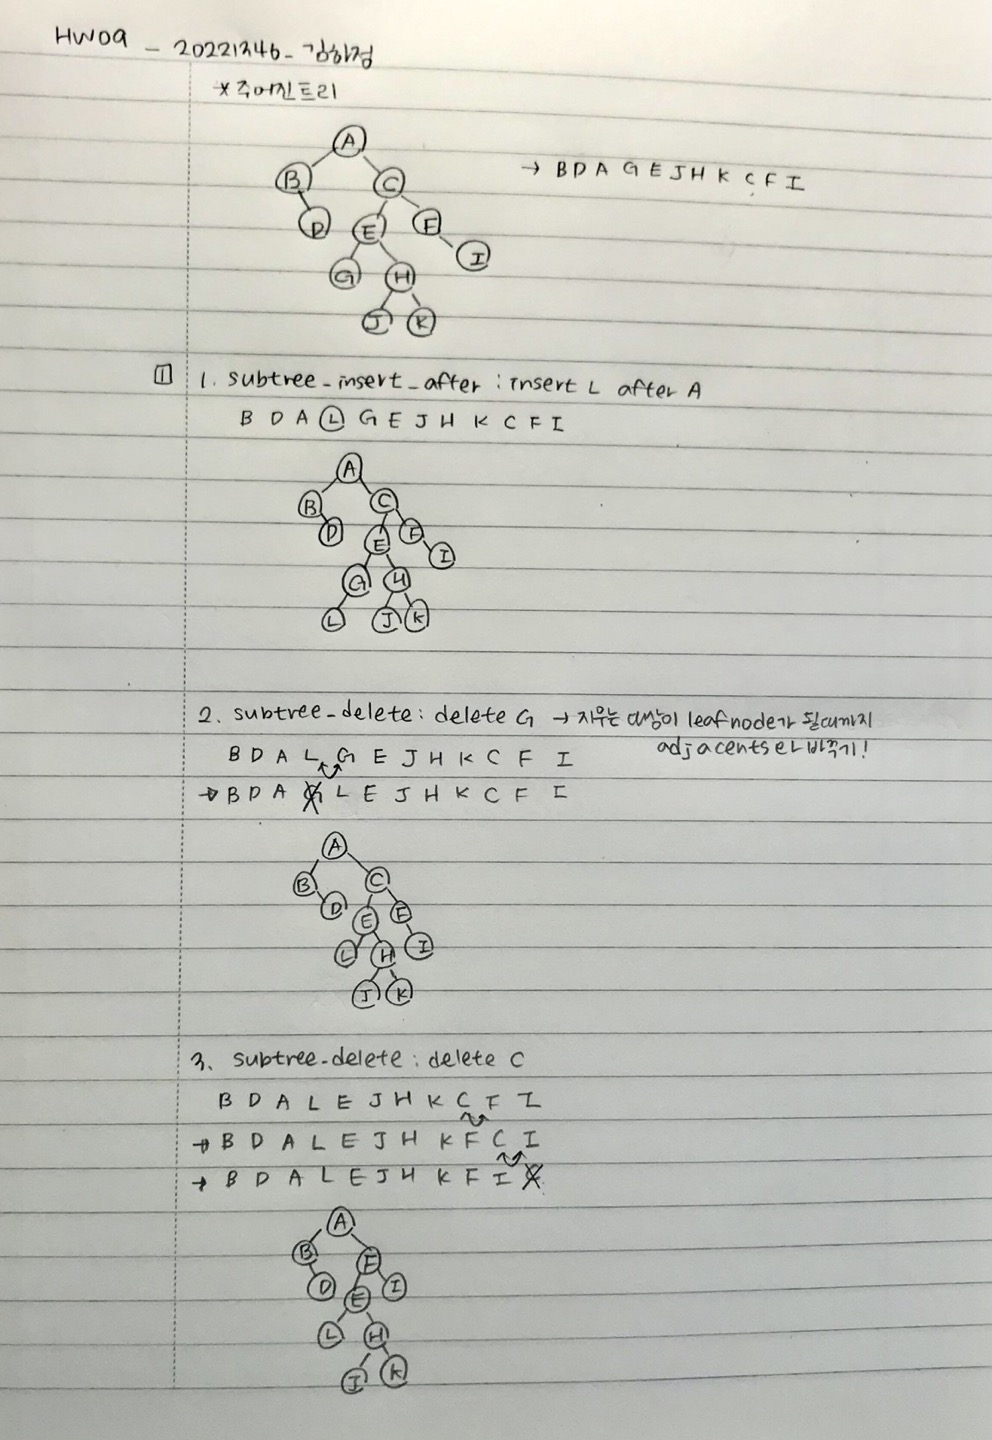 HW09 - 20221346 -
* 주어진트리
A
B C
D E F
G H I
J K
→ B D A G E J H K C F I
1 1. subtree_insert_after : insert L after A
B D A L G E J H K C F I
A
B C
D E F
G H I
L J K
2. subtree-delete : delete G → 지우는 대상이 leafnode가 될때까지
adjacents와 바꾸기!
B D A L G E J H K C F I
→ B D A G L E J H K C F I
A
B C
D E F
L H I
J K
3. subtree-delete : delete C
B D A L E J H K C F I
→ B D A L E J H K F C I
→ B D A L E J H K F I
A
B F
D E I
L H
J K